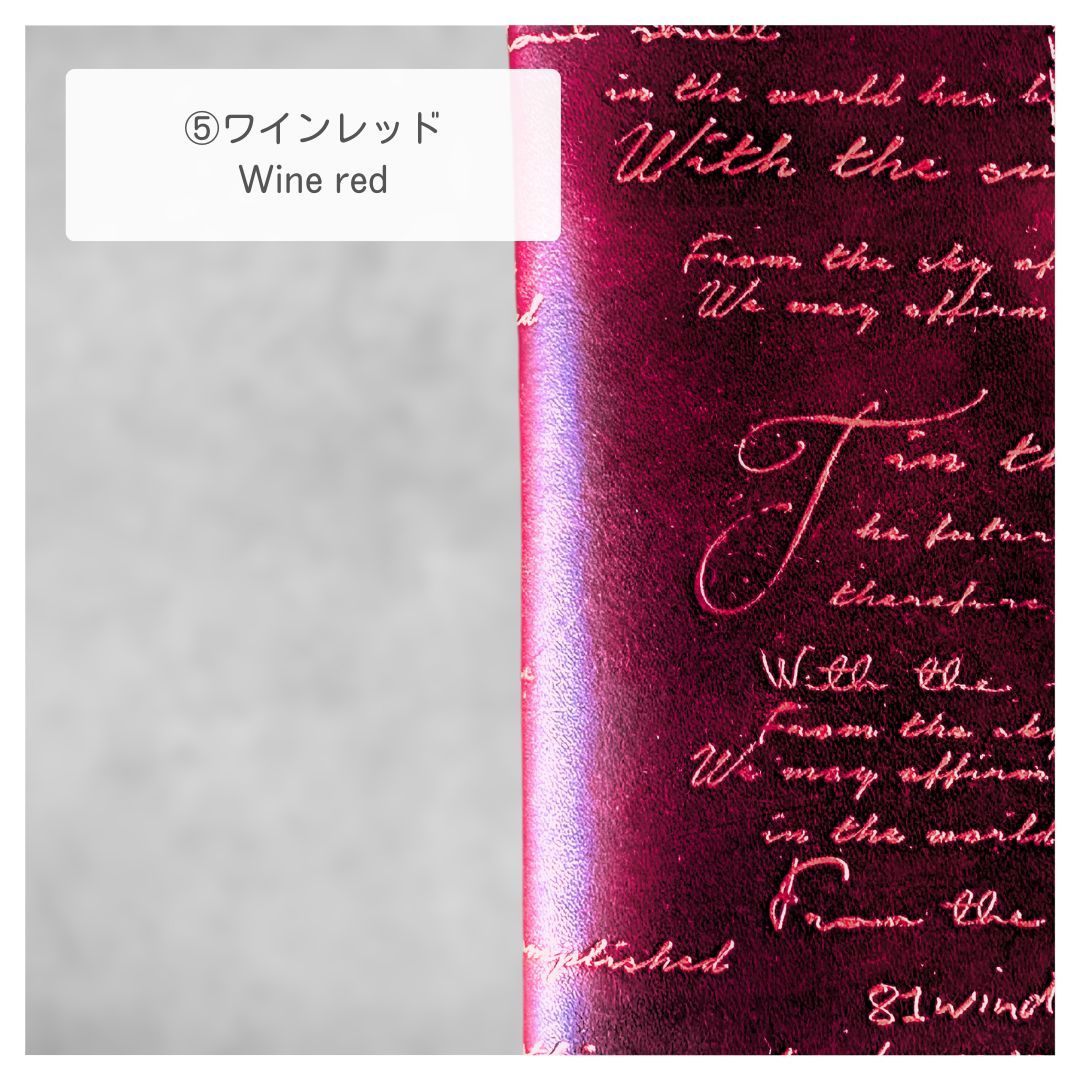 ⑤ワインレッド
Wine red
shall
in the world has
With the
From the sky of
We may affirm
T in
he
therefore
With the
From the sky
We may affirm
in the world
From the
mplished
81wind